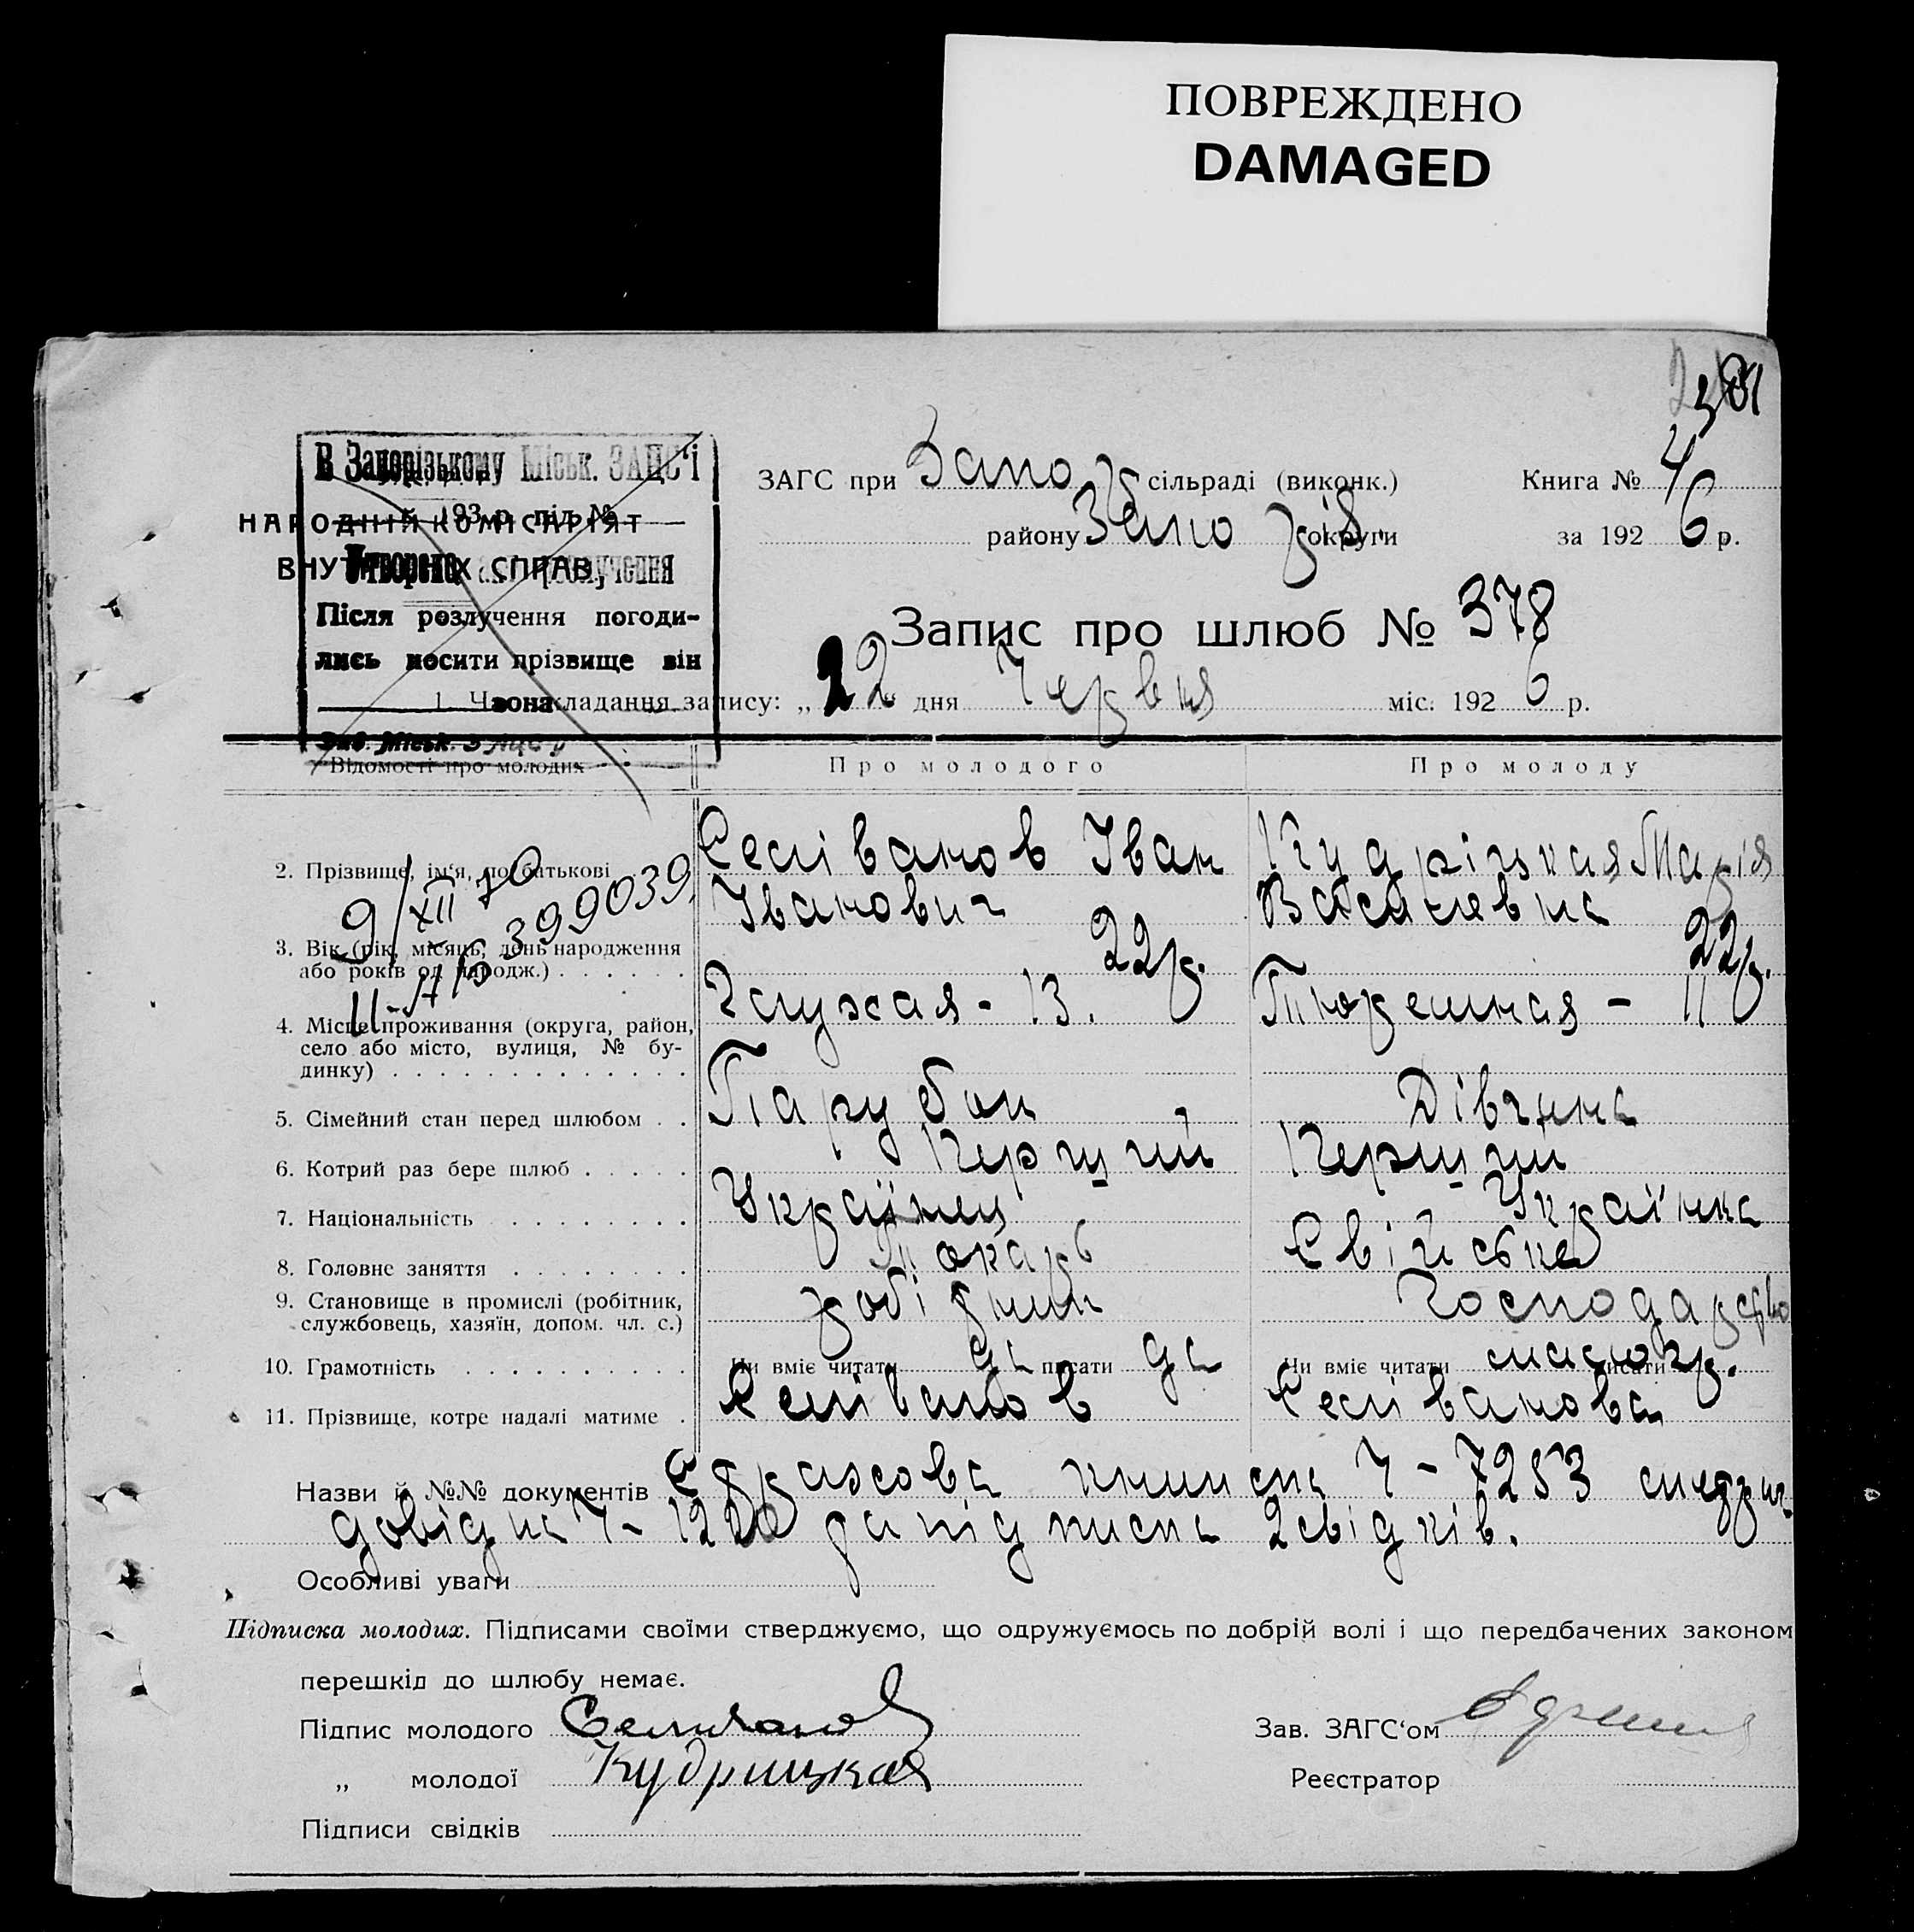 ПОВРЕЖДЕНО
DAMAGED
381
В Запорізькому Міськ. ЗАЦС'і
193 р. під №
НАРОДНІЙ КОМІСАРІЯТ
ВНУТРІШНІХ СПРАВ,
Утворено розлучення
Після розлучення погоди-
лись носити прізвище він
вона
Зав. Міськ. ЗАЦС'у
ЗАГС при Запор сільраді (виконк.) Книга № 4
району Запоріз. округи за 1926 р.
Запис про шлюб № 378
1. Час складання запису: „22" дня Червня міс. 1926 р.
Відомості про молодих Про молодого Про молоду
2. Прізвище, ім'я, по батькові Селіванов Іван Іванович Кудріцькая Марія Василевна
9/XII 70
II-АБ 399039,
3. Вік (рік, місяць, день народження або років од народж.) 22р. 22р.
4. Місце проживання (округа, район, село або місто, вулиця, № будинку) Глухая - 13. Тюремная - 11
5. Сімейний стан перед шлюбом Парубок Дівчина
6. Котрий раз бере шлюб Перший Перший
7. Національність Українец Українка
8. Головне заняття Токарь Свійське
9. Становище в промислі (робітник, службовець, хазяїн, допом. чл. с.) робітник Господарство
10. Грамотність Чи вміє читати да писати да Чи вміє читати малогр. писати
11. Прізвище, котре надалі матиме Селіванов Селіванова
Назви й №№ документів Страхова книжка Ч-7253
довідка Ч- та підписка 2 свідків.
Особливі уваги
Підписка молодих. Підписами своїми стверджуємо, що одружуємось по добрій волі і що передбачених законом
перешкід до шлюбу немає.
Підпис молодого Селиванов Зав. ЗАГС'ом
„ молодої Кудрицкая Реєстратор
Підписи свідків